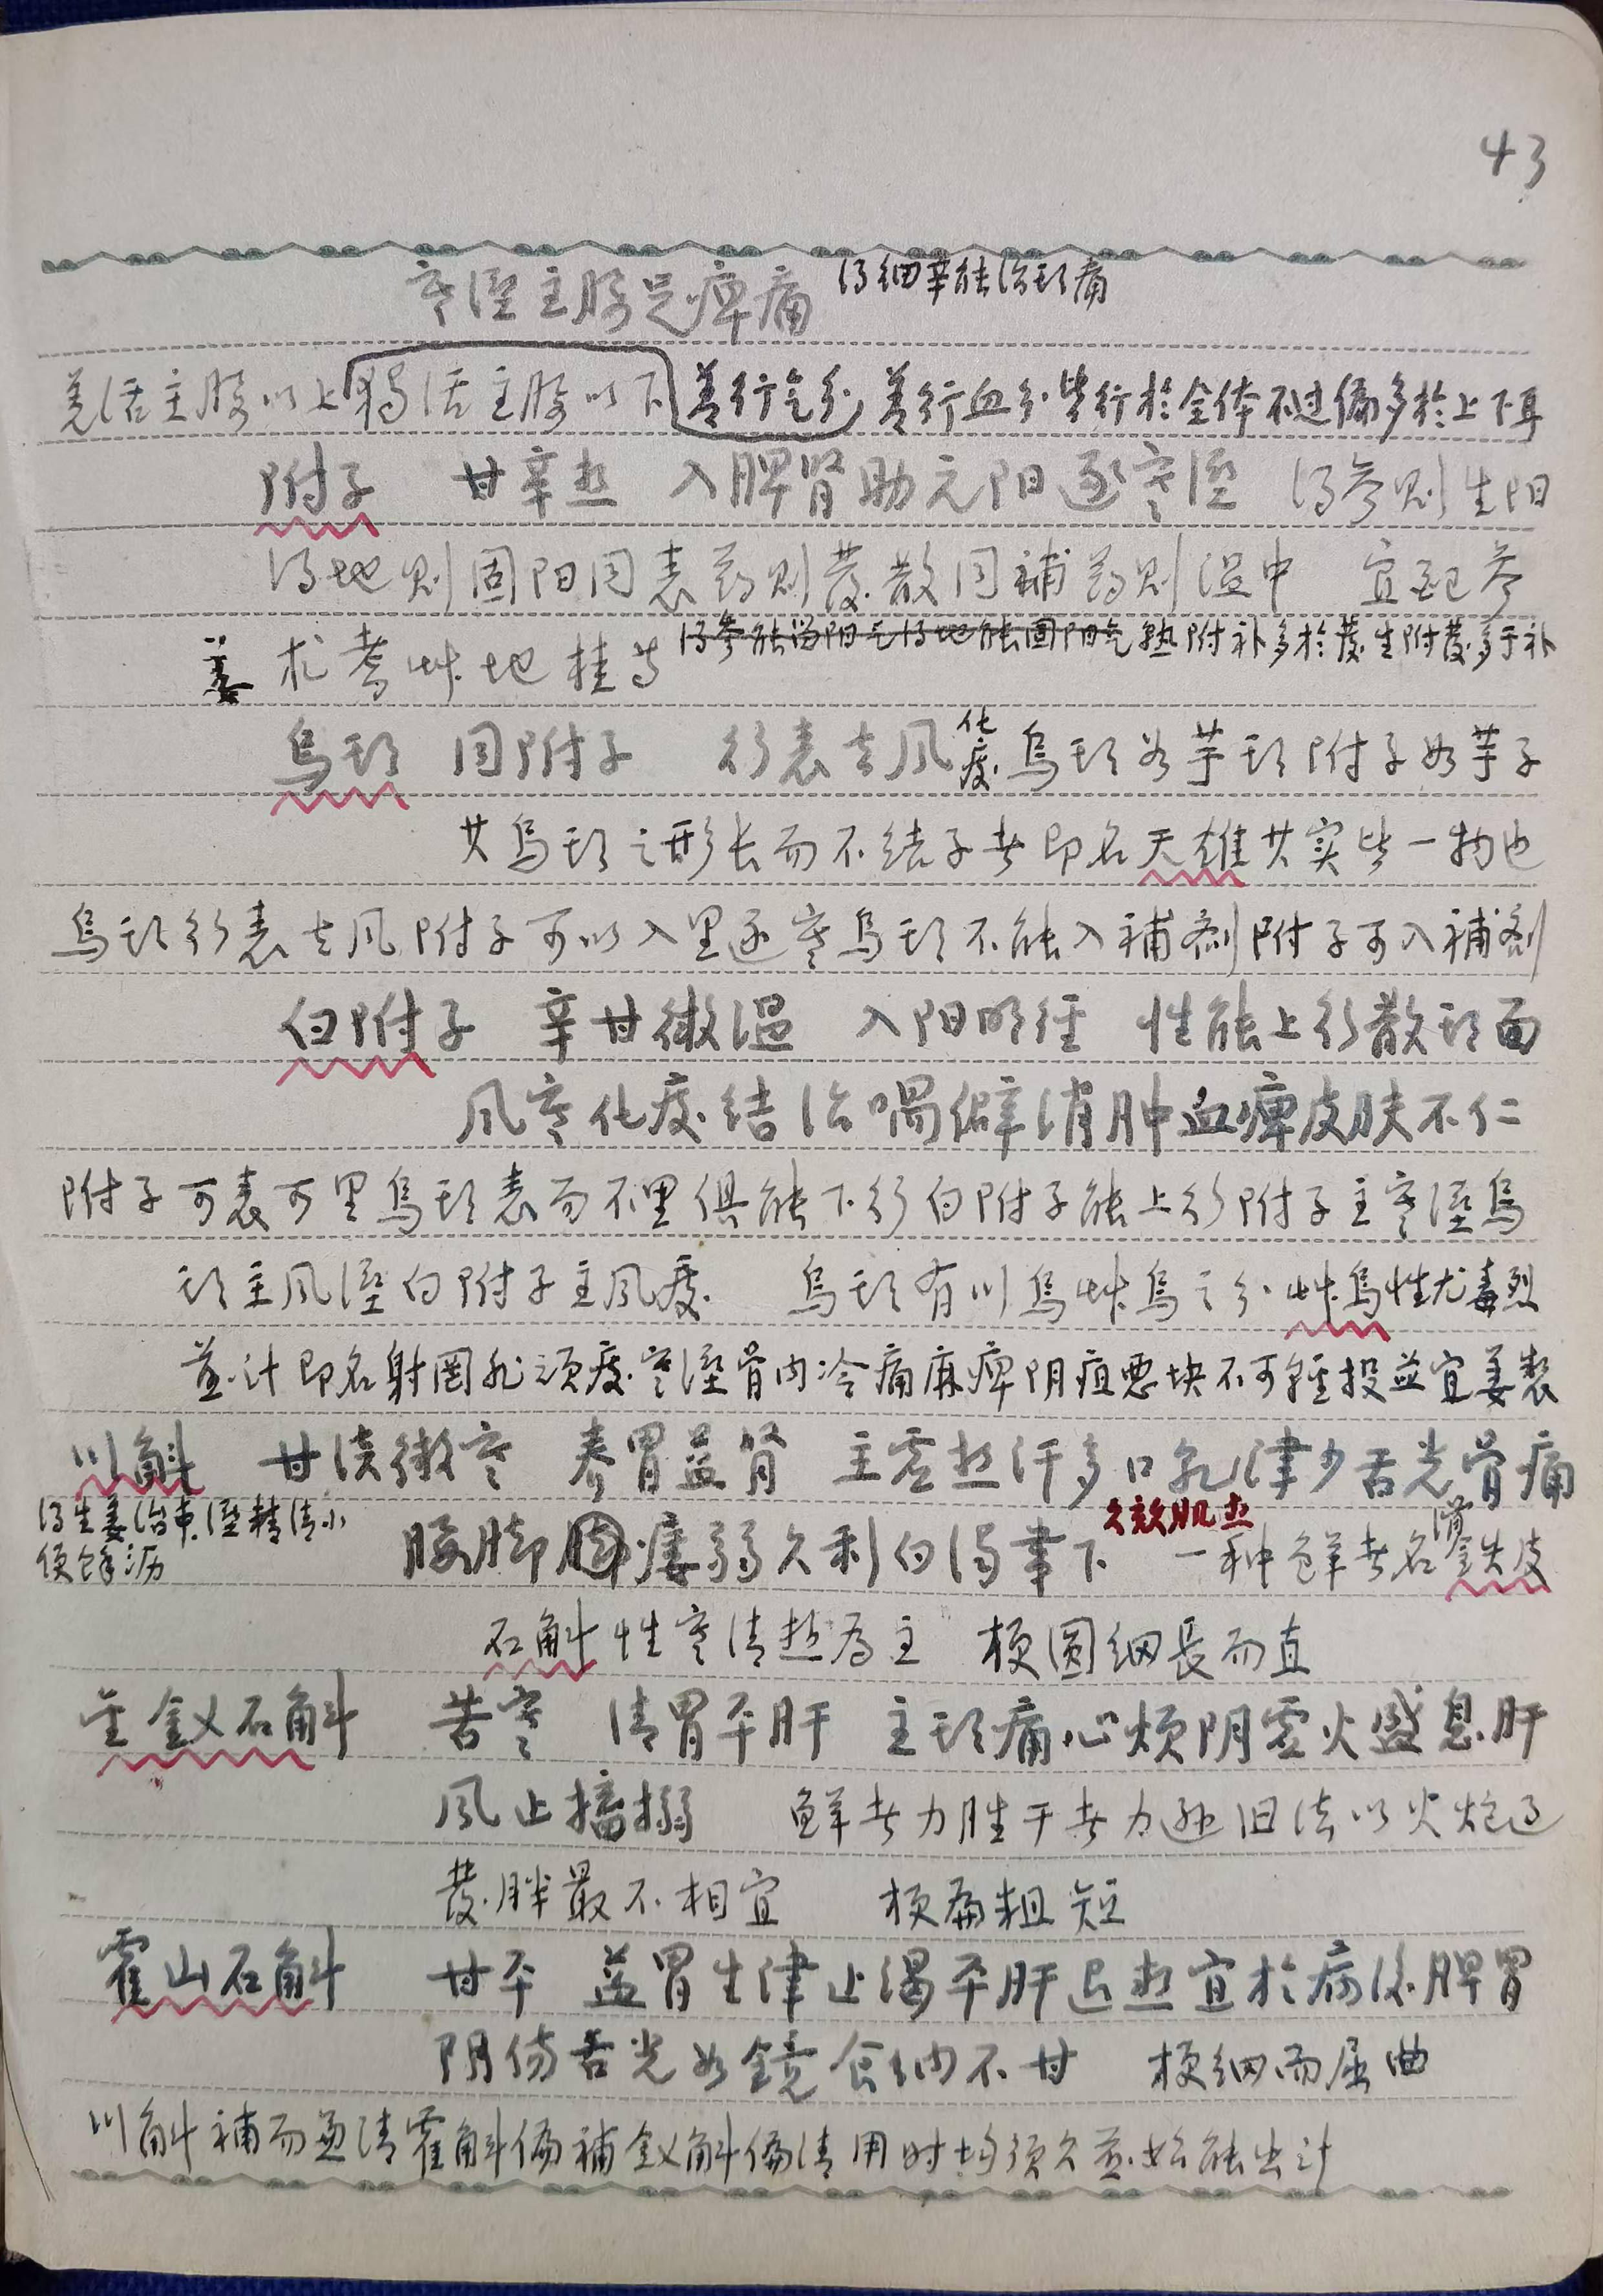 43
寒湿主腰足痺痛 得细辛能治头痛
羌活主腰以上 独活主腰以下 善行气分 善行血分 皆行於全体不过偏多於上下耳
附子 甘辛热 入脾肾助元阳逐寒湿 得参则生阳
得地则固阳同表药则發散同補药则温中 宜配参
姜 术 耆 艸 地 桂 等 得参能温阳气得地能固阳气 熟附补多於發生附發多于补
烏头 同附子 行表去风化痰 烏头为芋头附子如芋子
其烏头之形长而不结子者即名天雄其实皆一物也
烏头行表去风附子可以入里逐寒烏头不能入補剂附子可入補剂
白附子 辛甘微温 入阳明经 性能上行散头面
风寒化痰结治喎僻消肿血痺皮肤不仁
附子可表可里烏头表而不里俱能下行白附子能上行附子主寒湿烏
头主风湿白附子主风痰 烏头有川烏艸烏之分 艸烏性尤毒烈
煎汁即名射罔 顽痰寒湿骨内冷痛麻痺阴疽恶块不可轻投並宜姜製
川斛 甘淡微寒 养胃益肾 主虚热汗多口乾津少舌光骨痛
得生姜治 湿精清小
便餘沥
腰脚痿弱久利白带下 久数肌热 一种鲜者名 铁皮
石斛 性寒清热为主 梗圆细長而直
金釵石斛 苦寒 清胃平肝 主头痛心烦阴虚火盛息肝
风止搐搦 鲜者力胜干者力逊旧法以火炮之
發胖最不相宜 梗扁粗短
霍山石斛 甘平 益胃生津止渴平肝退热宜於病後脾胃
阴伤舌光如鏡食纳不甘 梗细而屈曲
川斛補而兼清霍斛偏補釵斛偏清用时均须久煎始能出汁